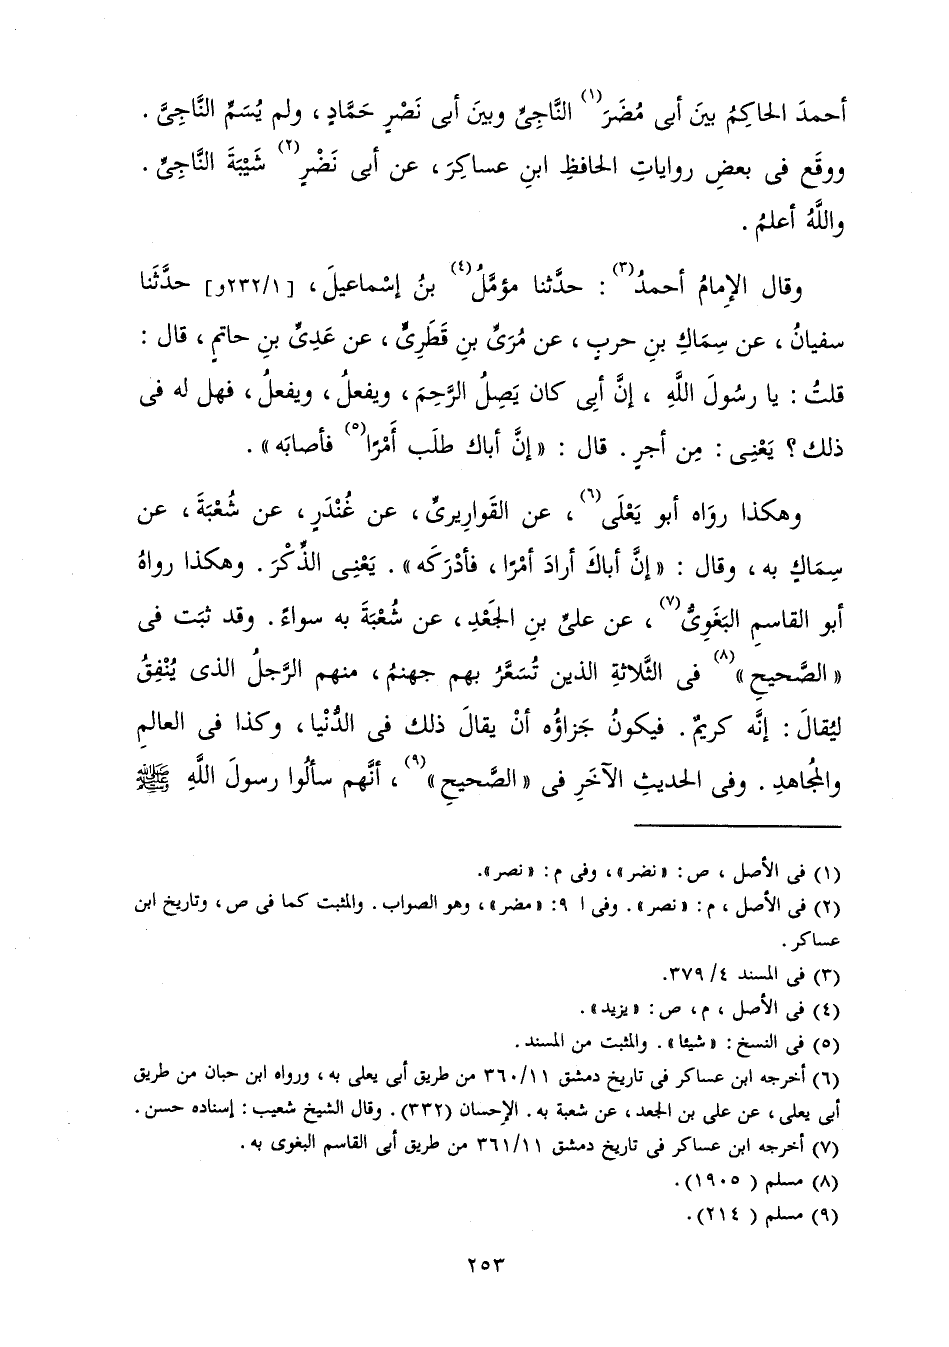 أحمدَ الحاكِمُ بينَ أبى مُضَرَ(١) النَّاجِىِّ وبينَ أبى نَصْرٍ حَمَّادٍ ، ولم يُسَمِّ النَّاجِىَّ .
ووقَع فى بعضِ رواياتِ الحافظِ ابنِ عساكِرَ ، عن أبى نَضْرٍ(٢) شَيْبَةَ النَّاجِىِّ .
واللَّهُ أعلمُ .
وقال الإمامُ أحمدُ(٣) : حدَّثنا مؤمَّلُ(٤) بنُ إسْماعيلَ ، [٢٣٢/١و] حدَّثَنا
سفيانُ ، عن سِمَاكِ بنِ حربٍ ، عن مُرَىِّ بنِ قَطَرِىٍّ ، عن عَدِىِّ بنِ حاتمٍ ، قال :
قلتُ : يا رسُولَ اللَّهِ ، إنَّ أبِى كان يَصِلُ الرَّحِمَ ، ويفعلُ ، ويفعلُ ، فهل له فى
ذلك ؟ يَعْنِى : مِن أجرٍ . قال : « إنَّ أباك طلَب أَمْرًا(٥) فأصابَه » .
وهكذا روَاه أبو يَعْلَى(٦) ، عن القَوارِيرىِّ ، عن غُنْدَرٍ ، عن شُعْبَةَ ، عن
سِمَاكٍ به ، وقال : « إنَّ أباكَ أرادَ أمْرًا ، فأدْرَكَه » . يَعْنِى الذِّكْرَ . وهكذا رواهُ
أبو القاسمِ البَغَوِىُّ(٧) ، عن علىِّ بنِ الجَعْدِ ، عن شُعْبَةَ به سواءً . وقد ثبَت فى
« الصَّحيحِ »(٨) فى الثَّلاثةِ الذين تُسَعَّرُ بهم جهنمُ ، منهم الرَّجلُ الذى يُنْفِقُ
ليُقالَ : إنَّه كريمٌ . فيكونُ جَزاؤُه أنْ يقالَ ذلك فى الدُّنْيا ، وكذا فى العالمِ
والمُجاهدِ . وفى الحديثِ الآخَرِ فى « الصَّحيحِ »(٩) ، أنَّهم سألُوا رسولَ اللَّهِ ﷺ
(١) فى الأصل ، ص : « نضر » ، وفى م : « نصر » .
(٢) فى الأصل ، م : « نصر » . وفى ا ٩ : « مضر » ، وهو الصواب . والمثبت كما فى ص ، وتاريخ ابن
عساكر .
(٣) فى المسند ٤/ ٣٧٩.
(٤) فى الأصل ، م ، ص : « يزيد » .
(٥) فى النسخ : « شيئا » . والمثبت من المسند .
(٦) أخرجه ابن عساكر فى تاريخ دمشق ٣٦٠/١١ من طريق أبى يعلى به ، ورواه ابن حبان من طريق
أبى يعلى ، عن على بن الجعد ، عن شعبة به . الإحسان (٣٣٢) . وقال الشيخ شعيب : إسناده حسن .
(٧) أخرجه ابن عساكر فى تاريخ دمشق ٣٦١/١١ من طريق أبى القاسم البغوى به .
(٨) مسلم ( ١٩٠٥) .
(٩) مسلم ( ٢١٤) .
٢٥٣